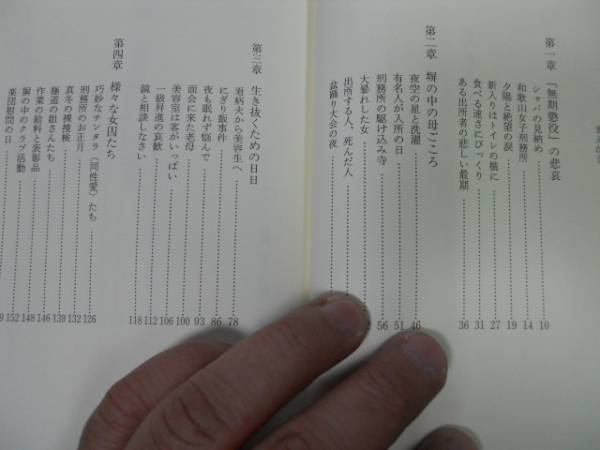 第一章 「無期懲役」の悲哀
シャバの見納め 10
和歌山女子刑務所 14
夕陽と絶望の涙 19
新入りはトイレの横に 27
食べる速さにびっくり 31
ある出所者の悲しい最期 36
第二章 塀の中の母ごころ
夜空の星と洗濯 46
有名人が入所の日 51
刑務所の駆け込み寺 56
大暴れした女
出所する人、死んだ人
盆踊り大会の夜
第三章 生き抜くための日日
看病夫から美容生へ 78
にぎり飯事件 86
夜も眠れず悩んで 93
面会に来た老母 100
美容室は客がいっぱい 106
一級昇進の哀歓 112
鏡と相談しなさい 118
第四章 様々な女囚たち
巧妙なテンタラ(同性愛)たち 126
刑務所のお正月 132
真冬の裸捜検 139
極道の姐さんたち 146
作業の給料と表彰品 148
塀の中のクラブ活動 152
楽団慰問の日